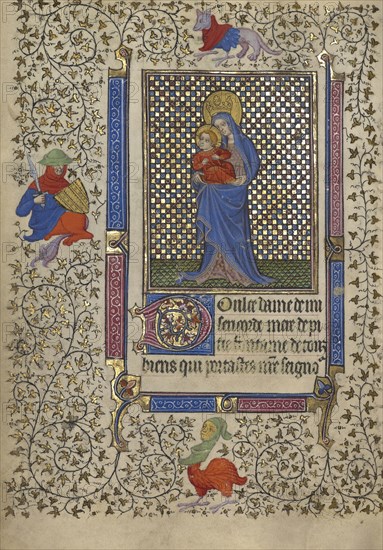 Doulce dame de mi
sericorde mere de pi
tie fontaine de tous
biens qui portastes nre seigna